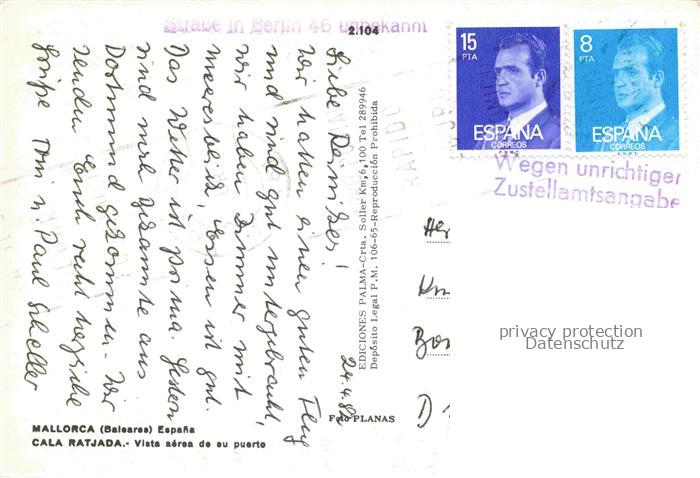 Straße in Berlin 46 unbekannt
2.104
24.4.82
Liebe Reinißer!
Wir hatten einen guten Flug
und sind gut untergebracht,
wir haben Zimmer mit
Meeresblick, Essen ist gut.
Das Wetter ist prima. Gestern
sind mehr Bekannte aus
Dortmund gekommen. Wir
senden Euch recht herzliche
Grüße Toni u. Paul Scheller
MALLORCA (Baleares) España
CALA RATJADA.- Vista aérea de su puerto
EDICIONES PALMA-Crta. Soller Km, 6,100 Tel 289946
Depósito Legal P.M. 106-65-Reproducción Prohibida
Foto PLANAS
15
PTA
ESPAÑA
CORREOS
8
PTA
ESPAÑA
CORREOS
Wegen unrichtiger
Zustellamtsangabe
privacy protection
Datenschutz
D